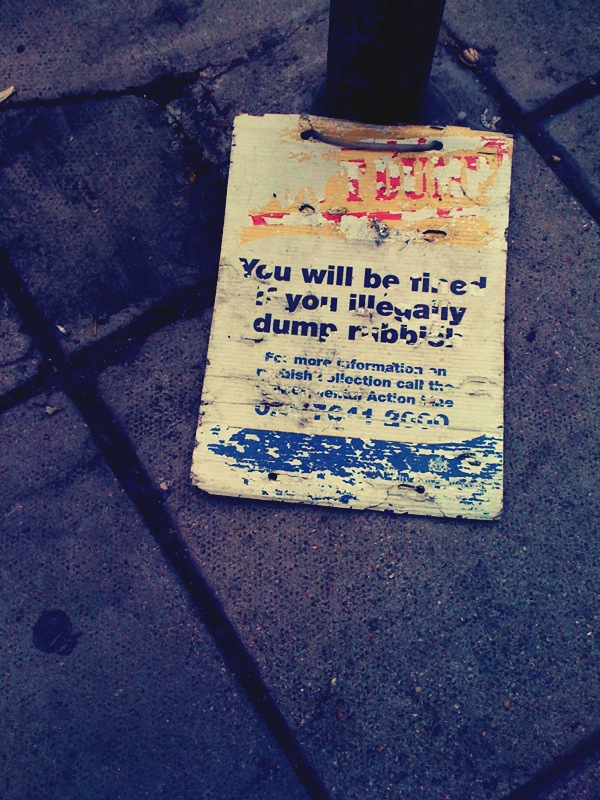 DUMP
You will be fined
if you illegally
dump rubbish
For more information on
rubbish collection call the
Environmental Action Line
7641 2000